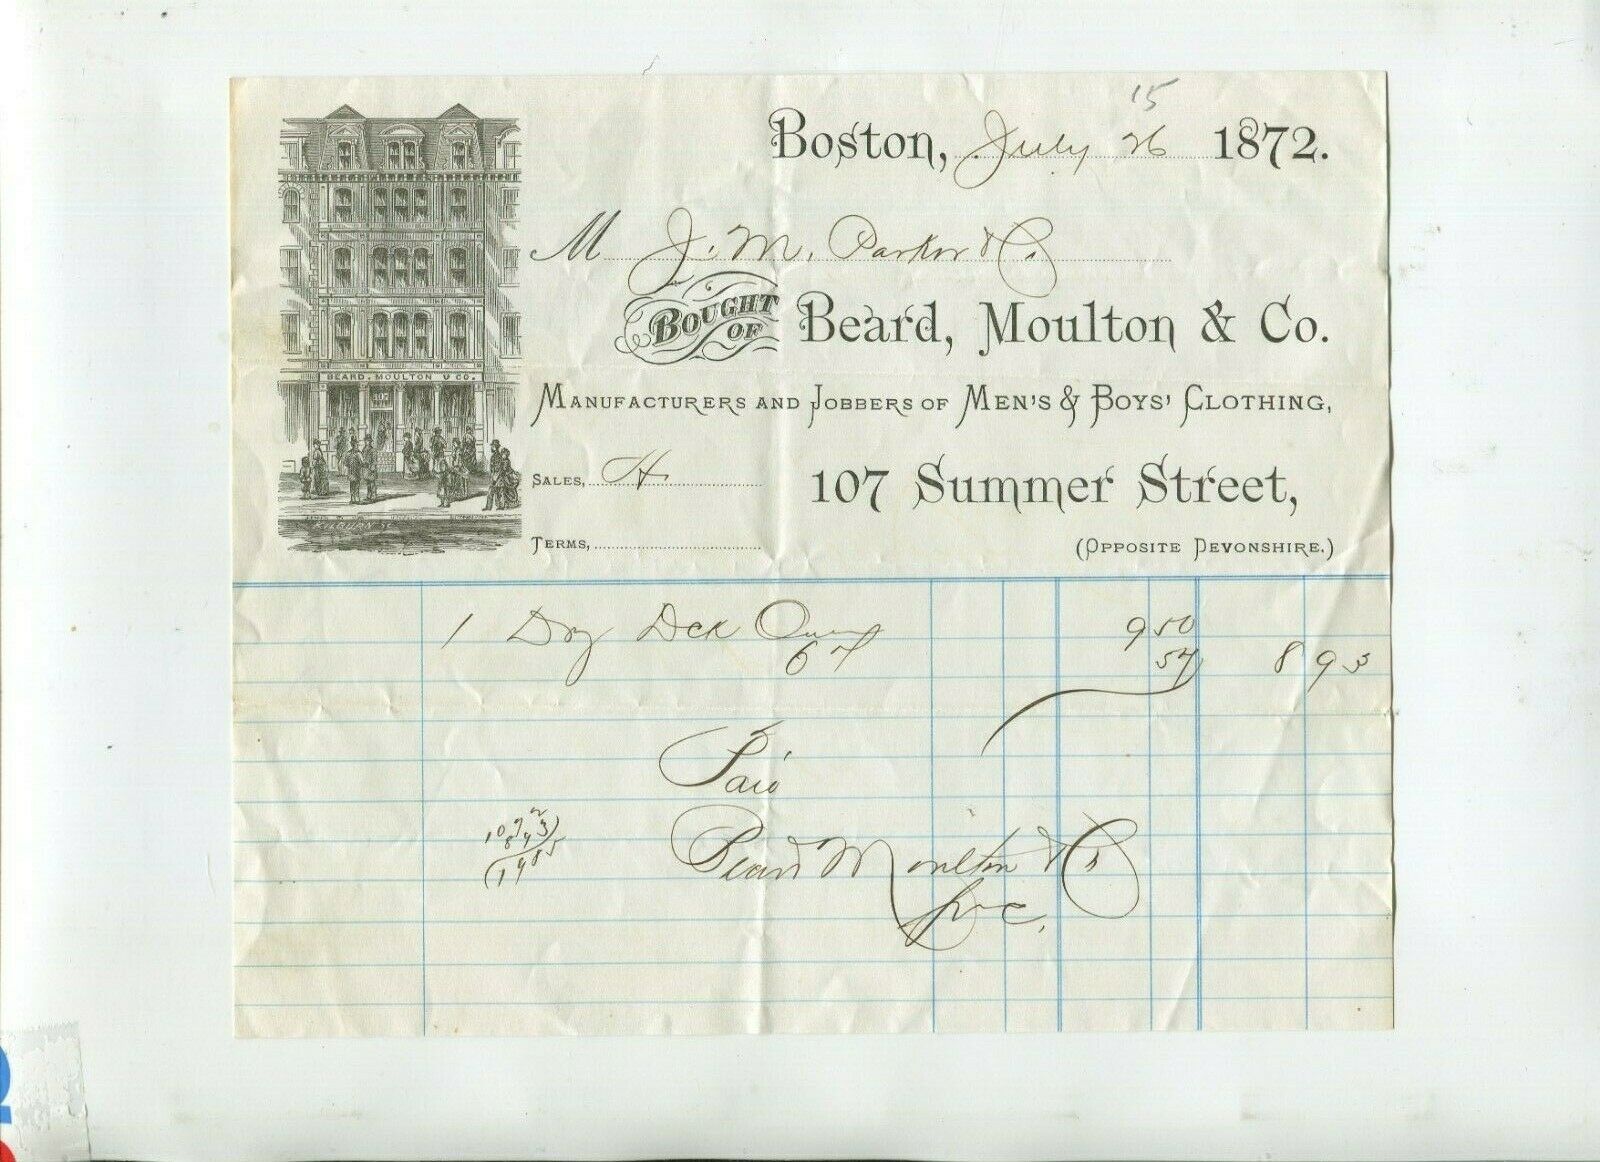 15
Boston, July 26 1872.
M J. M. Parker & Co.
BOUGHT OF Beard, Moulton & Co.
MANUFACTURERS AND JOBBERS OF MEN'S & BOYS' CLOTHING,
SALES, H
107 Summer Street,
TERMS,
(OPPOSITE DEVONSHIRE.)
BEARD, MOULTON & CO.
107
1 Doz Dck 9 50
6 57 8 93
Paid
Beard Moulton & Co